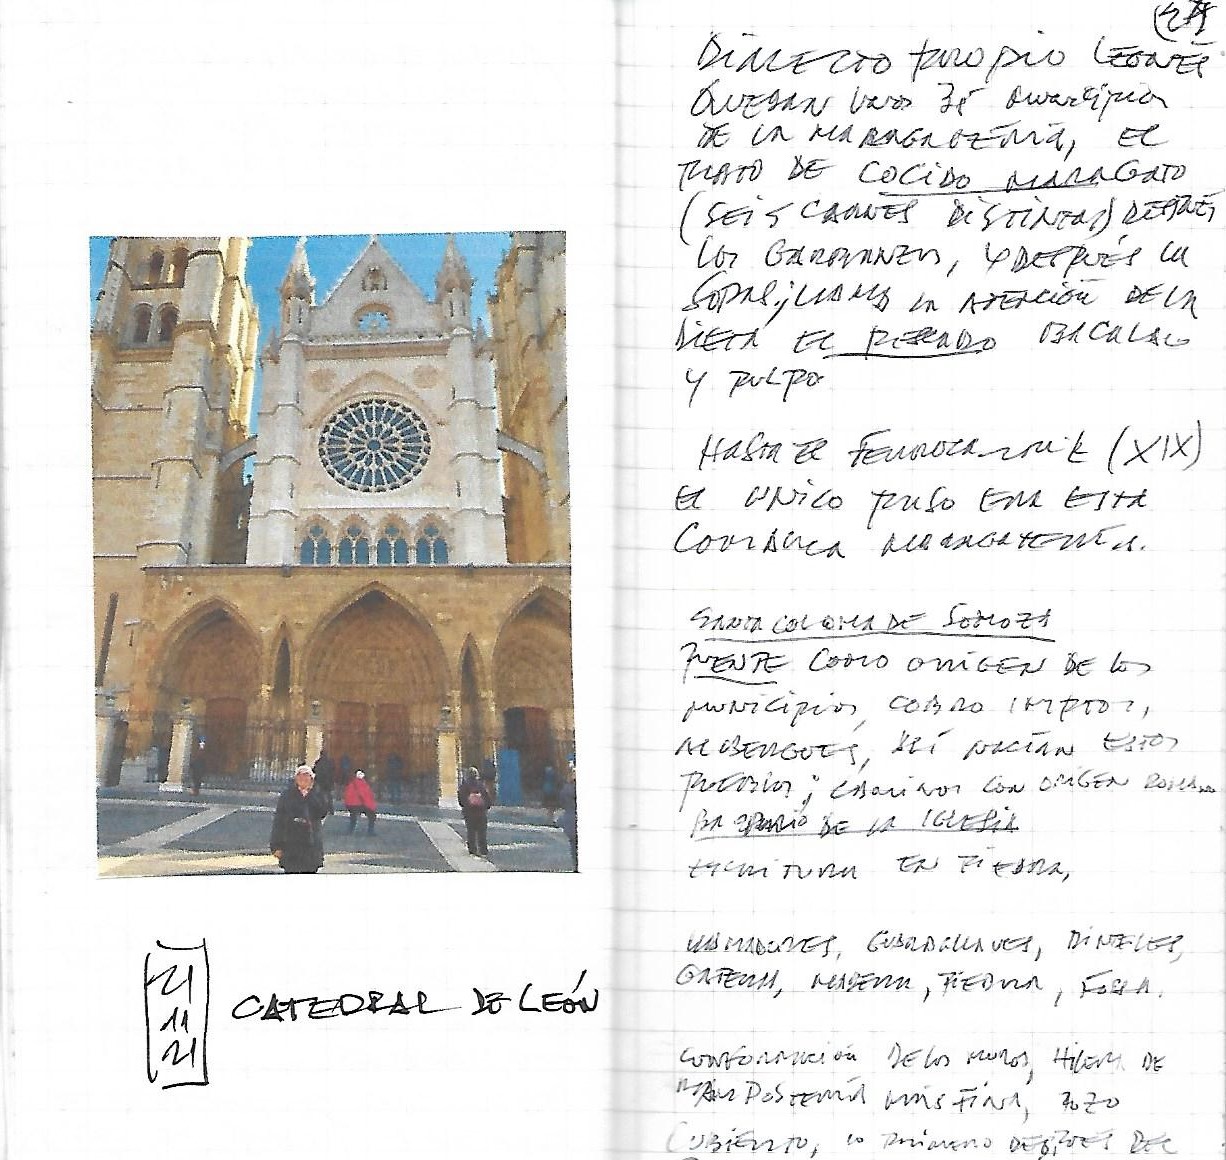 21
11
21
CATEDRAL DE LEÓN
DIALECTO PROPIO LEONÉS
QUEDAN UNOS MUNICIPIOS
DE LA MARAGATERIA, EL
PLATO DE COCIDO MARAGATO
(SEIS CARNES DISTINTAS) DESPUÉS
LOS GARBANZOS, Y DESPUÉS LA
SOPAS; LLAMA LA ATENCIÓN DE LA
DIETA EL PESCADO BACALAO
Y PULPO
HASTA EL FERROCARRIL (XIX)
EL UNICO PASO ERA ESTA
COMARCA MARAGATERÍA.
SANTA COLOMBA DE SOMOZA
PUENTE COMO ORIGEN DE LOS
MUNICIPIOS, COBRO IMPTOS,
ALBERGUES, ASÍ NACÍAN ESTOS
PUEBLOS; CAMINOS CON ORIGEN ROMANO
DE LA IGLESIA
ESCRITURA EN PIEDRA,
LLAMADORES, GUARDALLAVES, DINTELES,
GATERA, MADERA, PIEDRA, FORJA.
CONFORMACIÓN DE LOS MUROS, HILERA DE
MAMPOSTERÍA MÁS FINA, POZO
CUBIERTO, LO PRIMERO DESPUES DEL